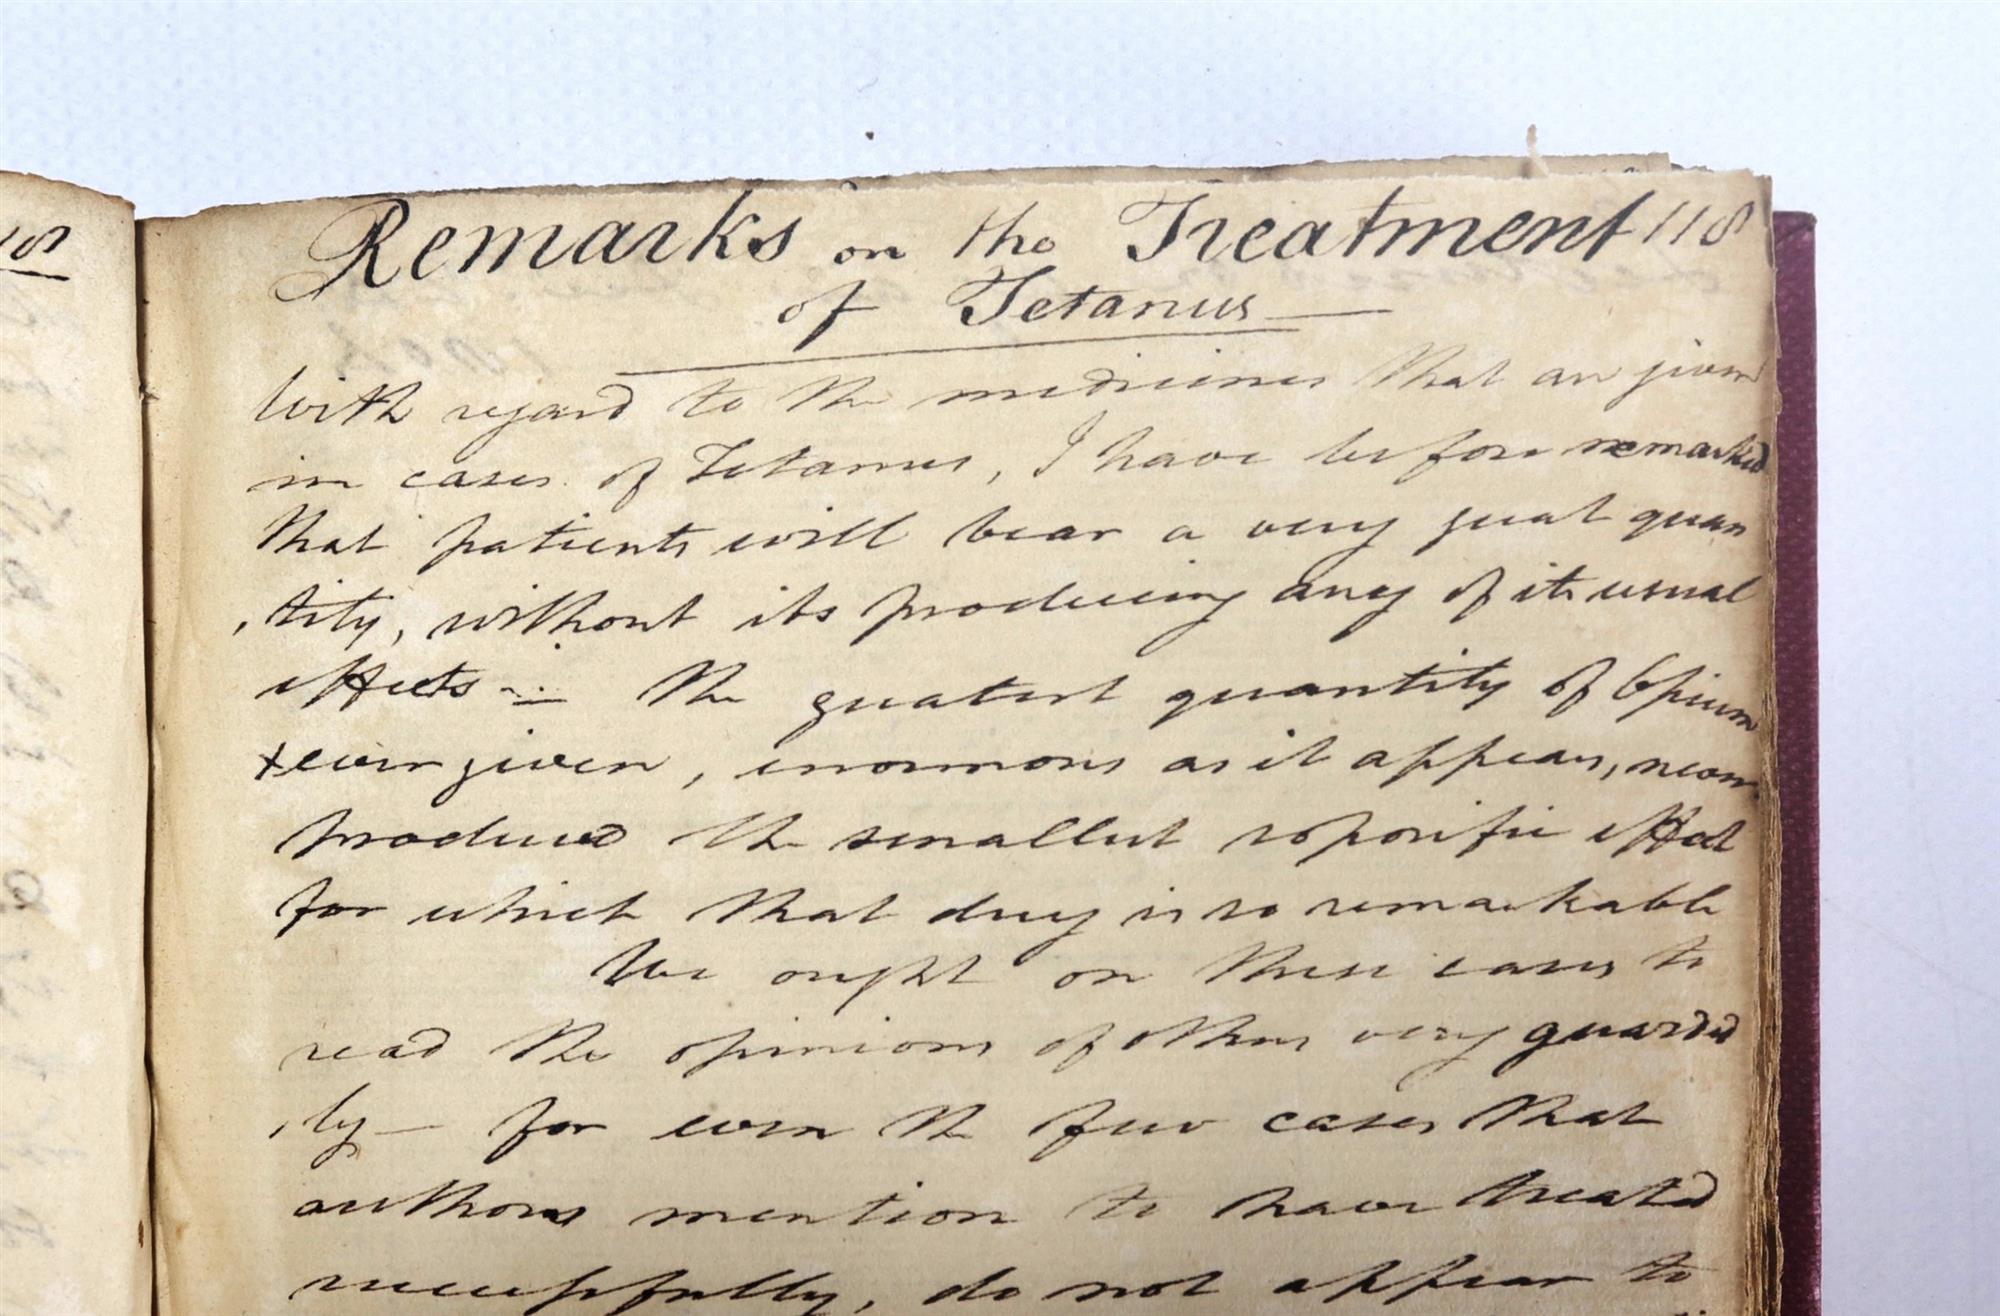 Remarks on the Treatment 118
of Tetanus —
With regard to the medicines that are given
in cases of Tetanus, I have before remarked
that patients will bear a very great quan
, tity, without its producing any of its usual
effects — The greatest quantity of Opium
+ ever given, enormous as it appears, never
produced the smallest soporific effect
for which that drug is so remarkable
We ought on these cases to
read the opinions of others very guarded
, ly — for even the few cases that
authors mention to have treated
successfully, do not appear to